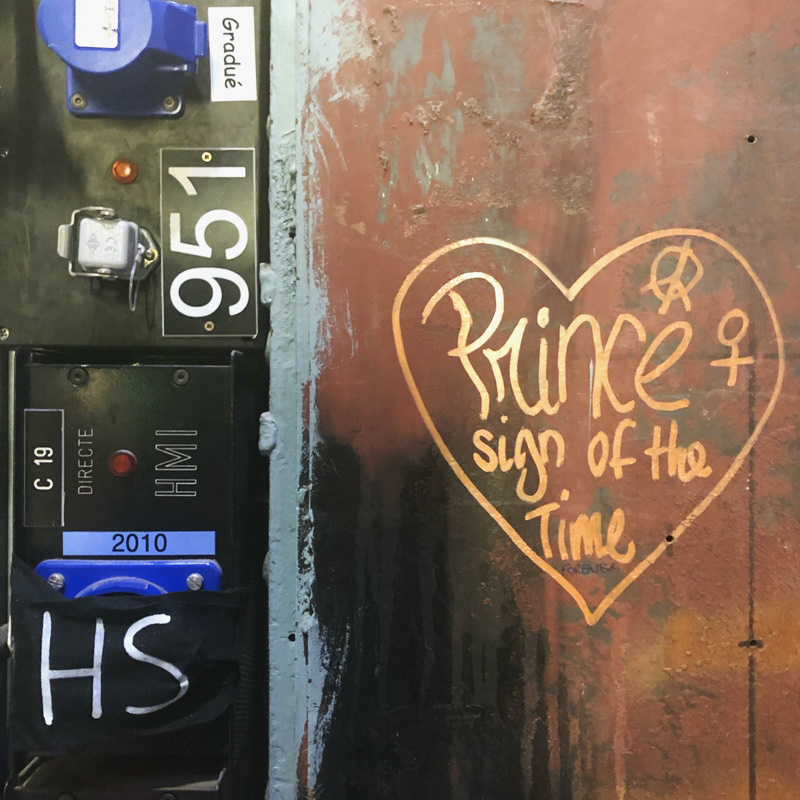 Gradué
951
C 19
DIRECTE
HMI
2010
HS
Prince
sign of the
Time